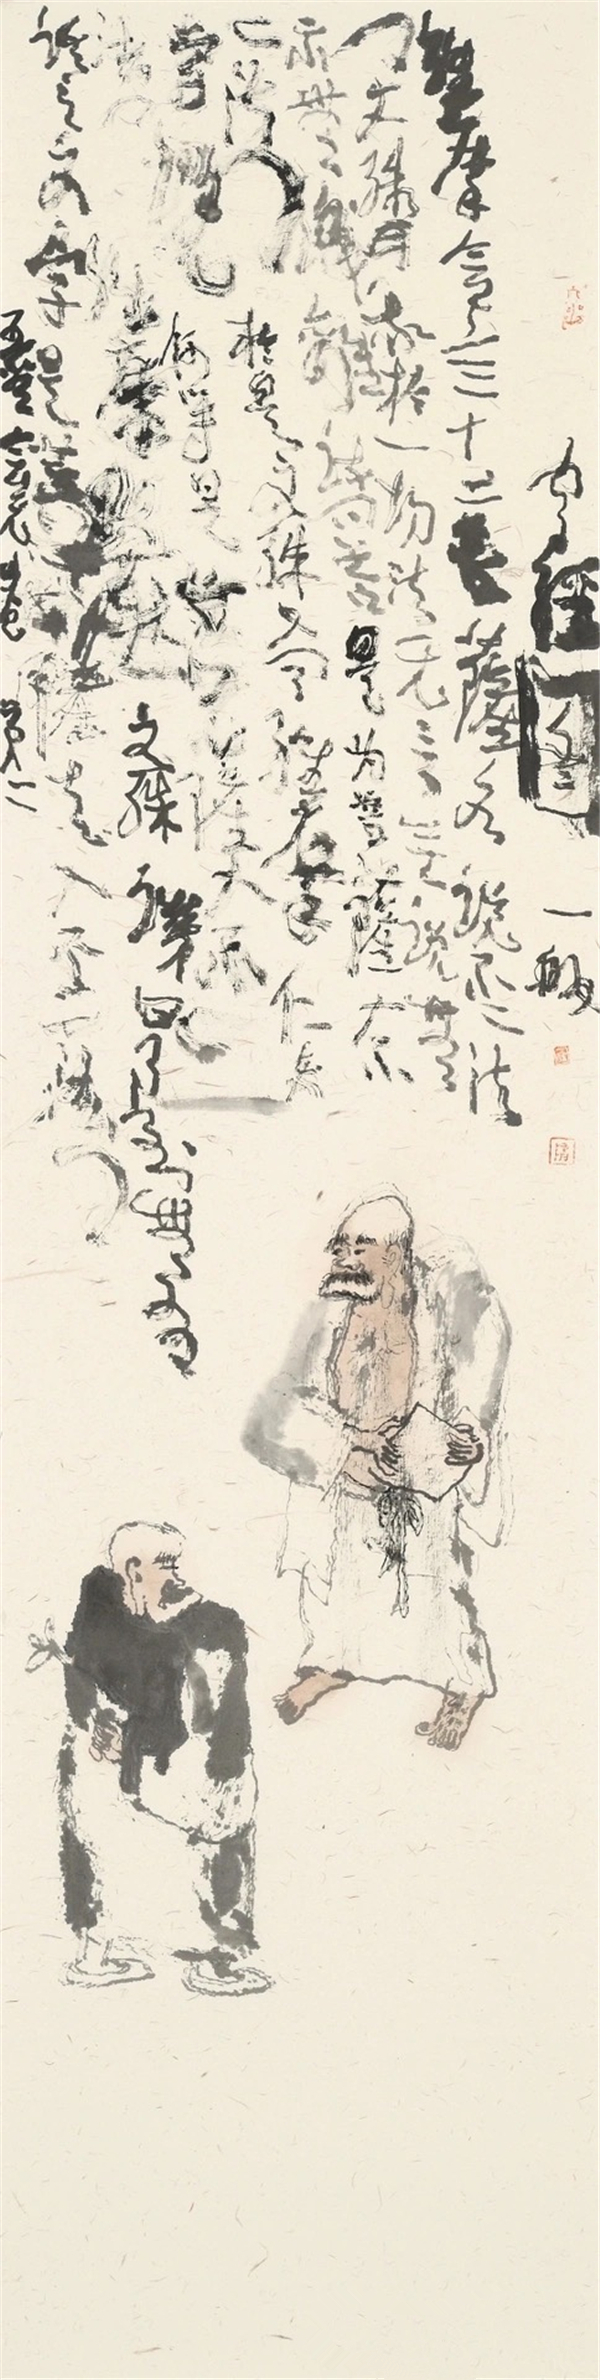 經圖
一
維摩會三十二菩薩各說不二法
門文殊曰我於一切法無言無說無
示無識離諸問答是為菩薩入不
二法門於是文殊又問維摩仁者
當說何等是菩薩入不二
法門維摩默然文殊讚曰乃至無有
語言文字是菩薩真入不二法門
五燈會元卷第二